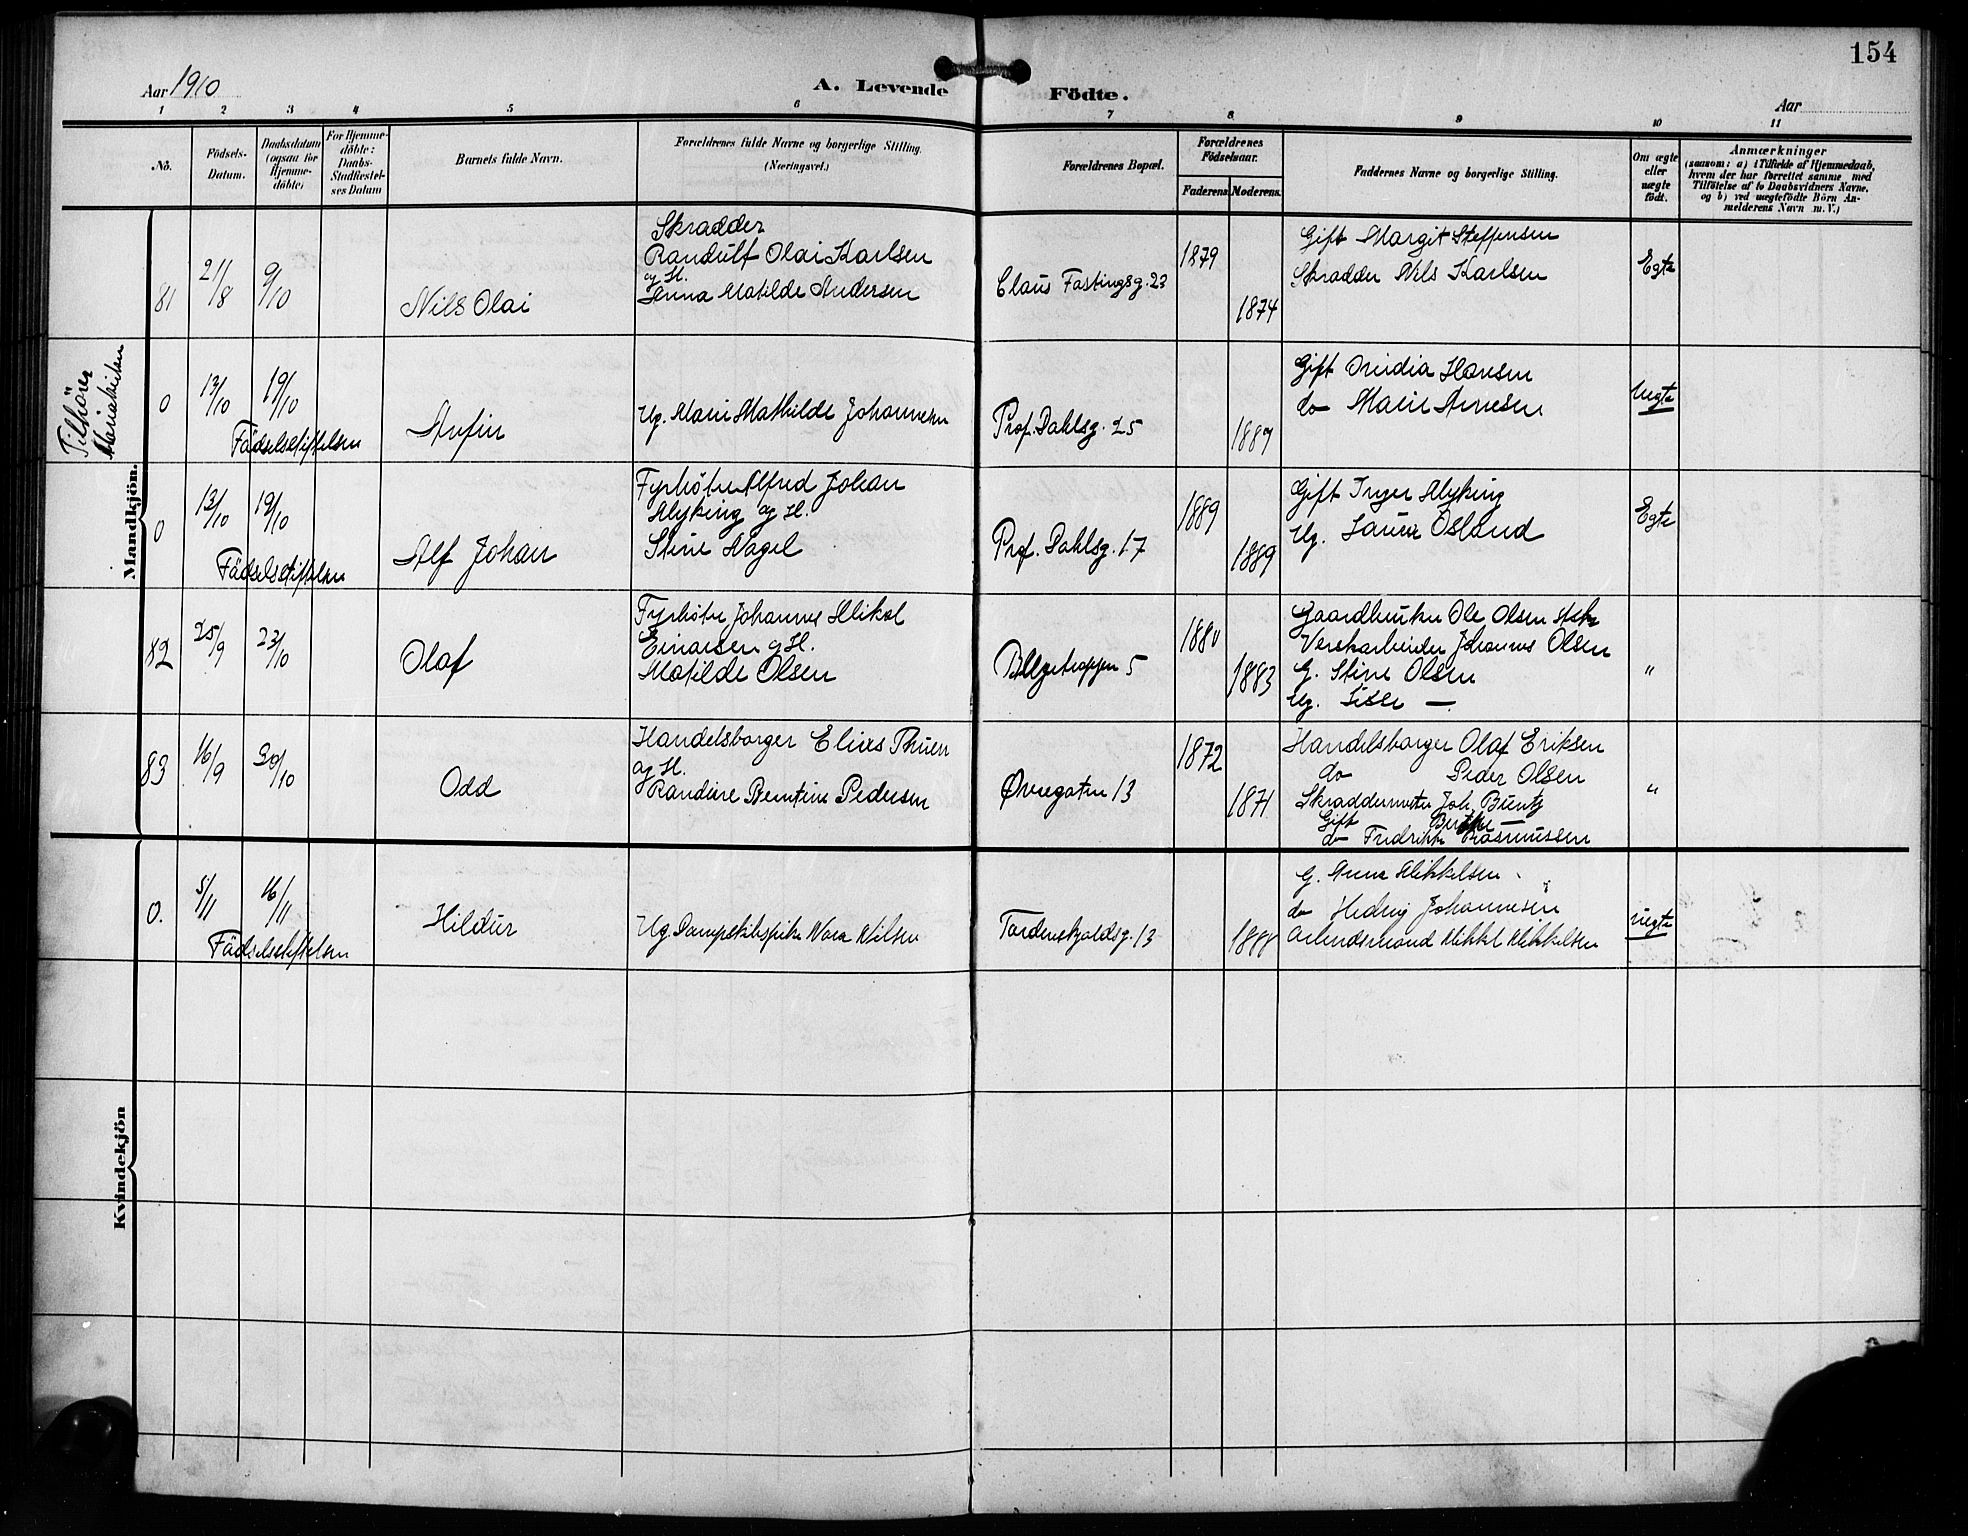 154
Aar 1910
A. Levende Födte.
Aar
1 2 3 4 5 6 7 8 9 10 11
No.
Födsels-
Datum.
Daabsdatum
(ogsaa for
Hjemme-
döbte)
For Hjemme-
döbte:
Daabs-
Stadfæstel-
ses Datum
Barnets fulde Navn.
Forældrenes fulde Navne og borgerlige Stilling.
(Næringsvei.)
Forældrenes Bopæl.
Forældrenes
Födselsaar.
Faderens Moderens
Faddernes Navne og borgerlige Stilling.
Om ægte
eller
uægte
födt.
Anmærkninger
(saasom: a) i Tilfælde af Hjemmedaab,
hvem der har forrettet samme, med
Tilföielse af to Daabsvidners Navne,
og b) ved uægtefödte Börn An-
melderens Navn m. V.)
Mandkjön.
81
21/8
9/10
Nils Olai
Skrædder
Randulf Olai Karlsen
og H.
Anna Matilde Andersen
Claus Fastingsg. 23
1879
1874
Gift Margit Steffensen
Skrædder Nils Karlsen
Egte
Tilhörer
Mariakirken
0
13/10
19/10
Födselsstiftelsen
Anfin
Ug. Marie Mathilde Johannesen
Prof. Dahlsg. 25
1889
Gift Ovidia Hansen
do Marie Arnesen
Uegte
0
13/10
19/10
Födselsstiftelsen
Alf Johan
Fyrböter Alfred Johan
Myking og H.
Stine Nagel
Prof. Dahlsg. 17
1889
1889
Gift Inger Myking
Ug. Laura Osland
Egte
82
25/9
23/10
Olaf
Fyrböter Johannes Mikal
Einarsen og H.
Matilde Olsen
5
1880
1883
Gaardbruker Ole Olsen Ask
Verksarbeider Johannes Olsen
G. Stine Olsen
Ug. —
"
83
16/9
30/10
Odd
Handelsborger Elias
og H.
Randine Bentine Pedersen
Øvregaten 13
1872
1871
Handelsborger Olaf Eriksen
do Peder Olsen
Skræddermester Joh. Buntz
Gift Berthe —
do Fredrikke Rasmussen
"
Kvindekjön
0.
5/11
16/11
Födselsstiftelsen
Hildur
Ug. Dampskibspike Nora Nilsen
Tordenskjoldsg. 13
1888
G. Anna Mikkelsen
do Hedvig Johannesen
Arbeidsmand Mikkel Mikkelsen
uegte